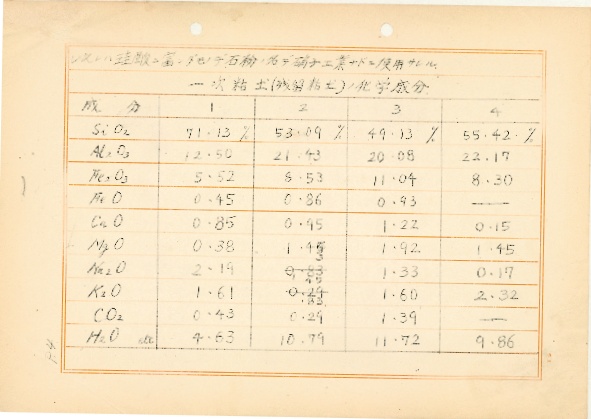 一次粘土(残留粘土)ノ化学成分
成分 1 2 3 4
SiO₂ 71.13 % 53.09 % 49.13 % 55.42 %
Al₂O₃ 12.50 21.43 20.08 22.17
Fe₂O₃ 5.52 8.53 11.04 8.30
FeO 0.45 0.86 0.93 —
CaO 0.85 0.95 1.22 0.15
MgO 0.38 1.92 1.45
Na₂O 2.19 1.33 0.17
K₂O 1.61 1.60 2.32
CO₂ 0.43 0.29 1.39 —
H₂O etc 4.63 10.79 11.72 9.86